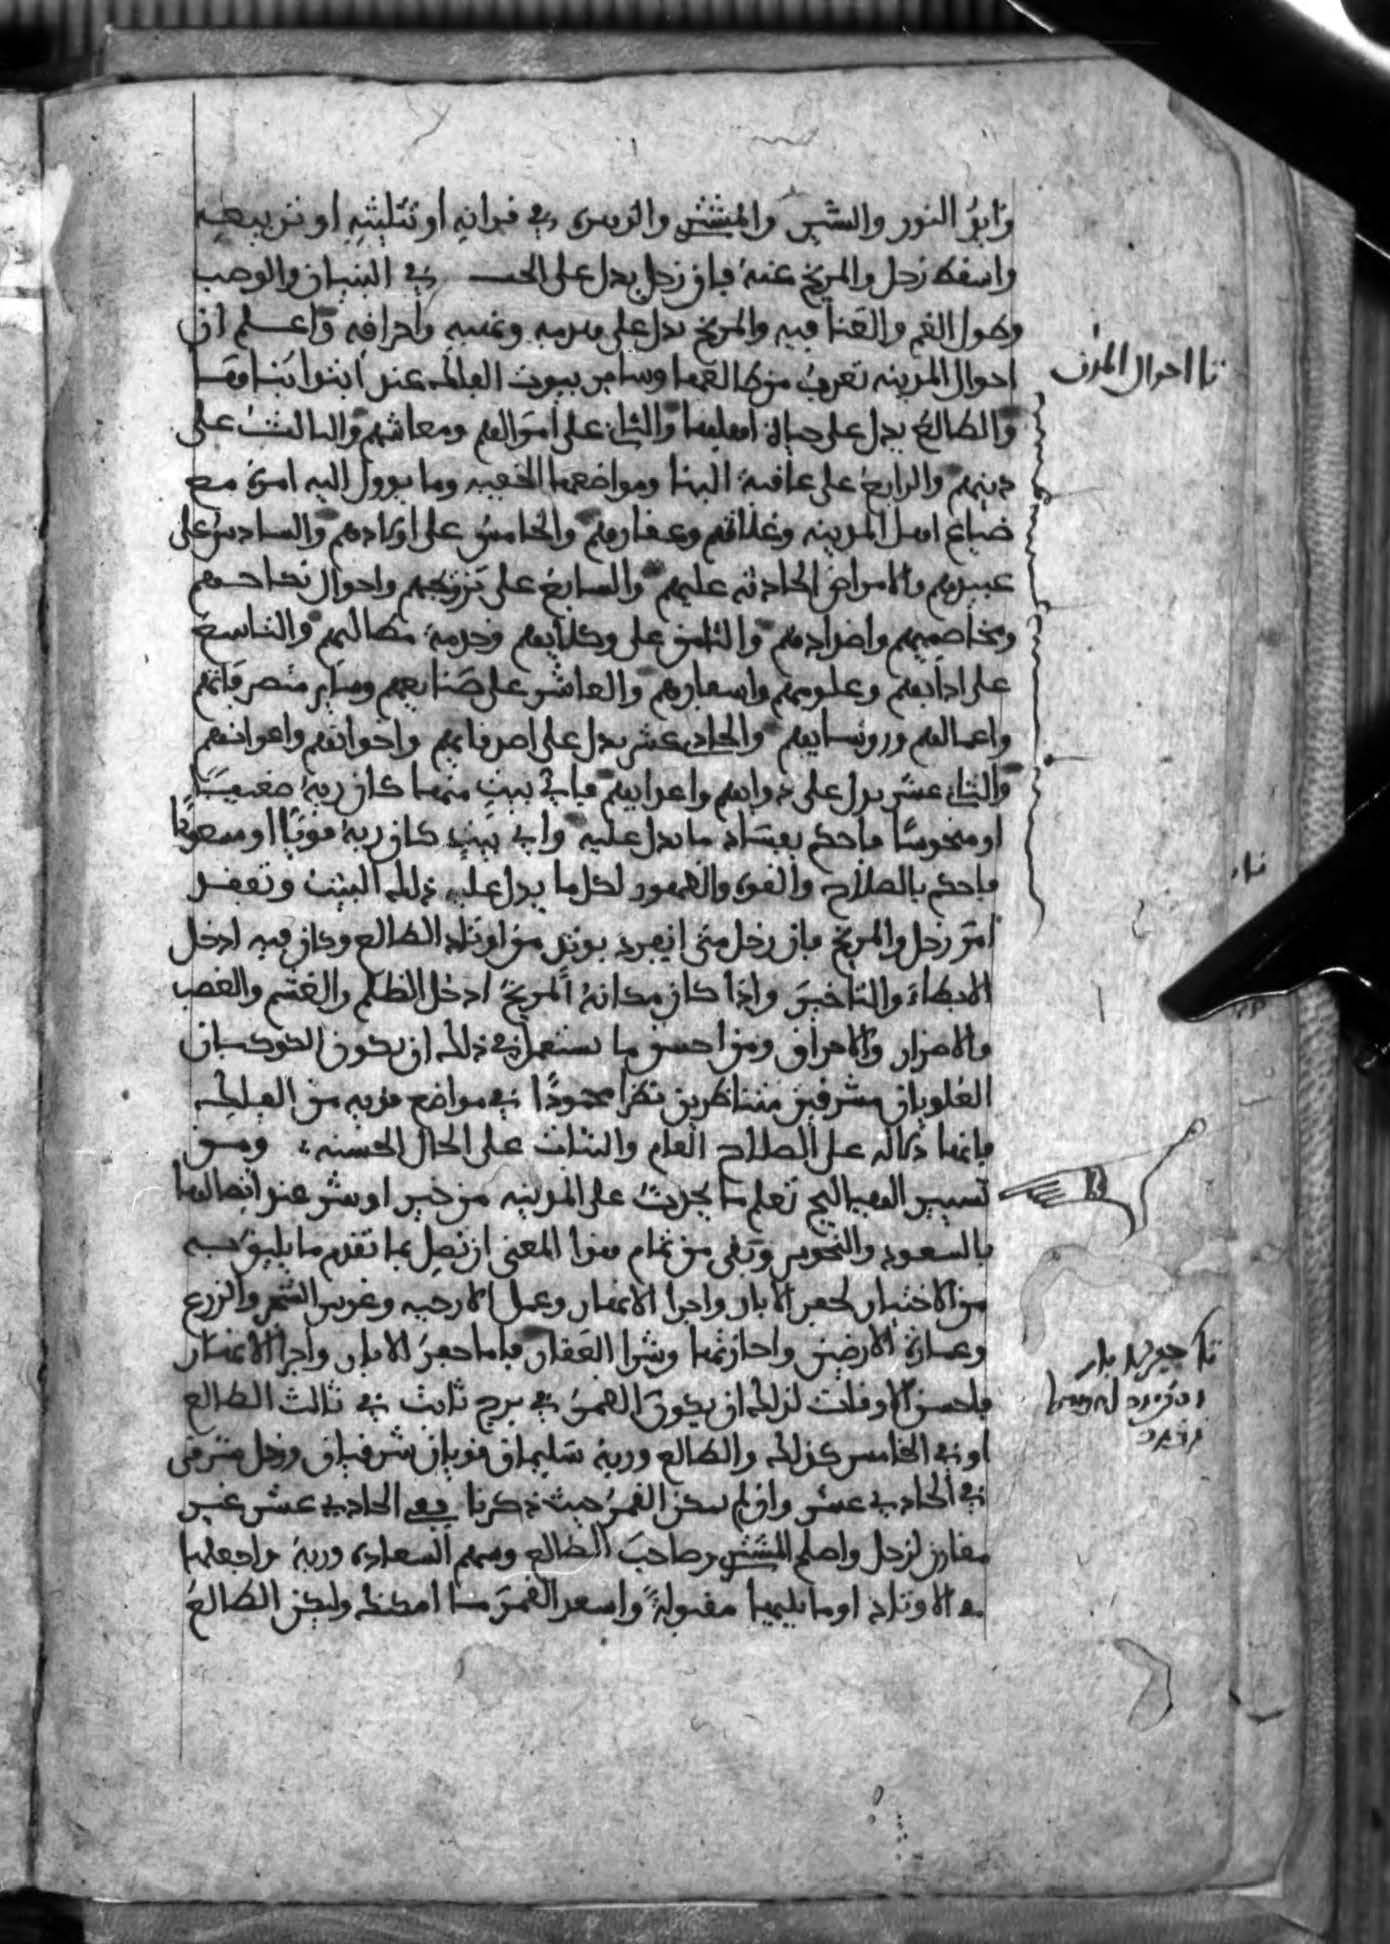 وابق النور والشمس والمشتري والزهرة في قرانه او تثليثه او تربيعه
واسقط زحل والمريخ عنه فان زحل يدل على في البنيان والوصب
وطول الغم والعنا فيه والمريخ يدل على هدمه ونهبه واحراقه واعلم ان
احوال المدينه تعرف من طالعها وساير بيوت الفلك عند ابتدا بنا
والطالع يدل على حياة اهلها والثاني على اموالهم ومعاشهم والثالث على
دينهم والرابع على عاقبة البنا ومواضعها الخفيه وما يوول اليه امره مع
ضياع اهل المدينه وغلاتهم وعقارهم والخامس على اولادهم والسادس على
عبيدهم والامراض الحادثه عليهم والسابع على تزويجهم واحوال نكاحهم
ومخاصميهم واضدادهم والثامن على وكلايهم وخدمة مطالبهم والتاسع
على ادابهم وعلومهم واسفارهم والعاشر على صنايعهم وساير متصرفاتهم
واعمالهم وروسايهم والحادي عشر يدل على اصدقايهم واخوانهم واعوانهم
والثاني عشر يدل على دوابهم واعدايهم فاي بيت منها كان ربه ضعيفا
او منحوسا فاحكم بفساد ما يدل عليه واي بيت كان ربه قويا او مسعودا
فاحكم بالصلاح والقوه والظهور لكل ما يدل عليه ذلك البيت وتفقد
امر زحل والمريخ فان زحل متى انفرد بوتد من اوتاد الطالع وكان فيه ادخل
الابطاء والتاخير واذا كان مكانه المريخ ادخل الظلم والغشم والغصب
والاضرار والاحراق ومن احسن ما يستعمل في ذلك ان يكون الكوكبان
العلويان مشرقين متناظرين نظرا محمودا في مواضع قويه من الفلك
فانها دالة على الصلاح العام والثبات على الحال الحسنه ومن
تسيير الهياليج تعلم ما يحدث على المدينه من خير او شر عند اتصالها
بالسعود والنحوس وبقي من تمام هذا المعنى ان نصل بما تقدم ما يليق به
من الاختيار لحفر الابار واجرا الانهار وعمل الارحيه وغرس الشجر والزرع
وعمارة الارضين واحازتها وشرا العقار فاما حفر الابار واجرا الانهار
فاحسن الاوقات لذلك ان يكون القمر في برج ثابت في ثالث الطالع
او في الخامس كذلك والطالع وربه سليمان قويان شرقيان وزحل مشرقي
في الحادي عشر وان لم يكن القمر حيث ذكرنا ففي الحادي عشر غير
مقارن لزحل واصلح المشتري وصاحب الطالع وسهم السعاده وربه واجعلها
في الاوتاد او ما يليها مقبولة واسعد القمر ما امكنك وليكن الطالع
احوال المدن